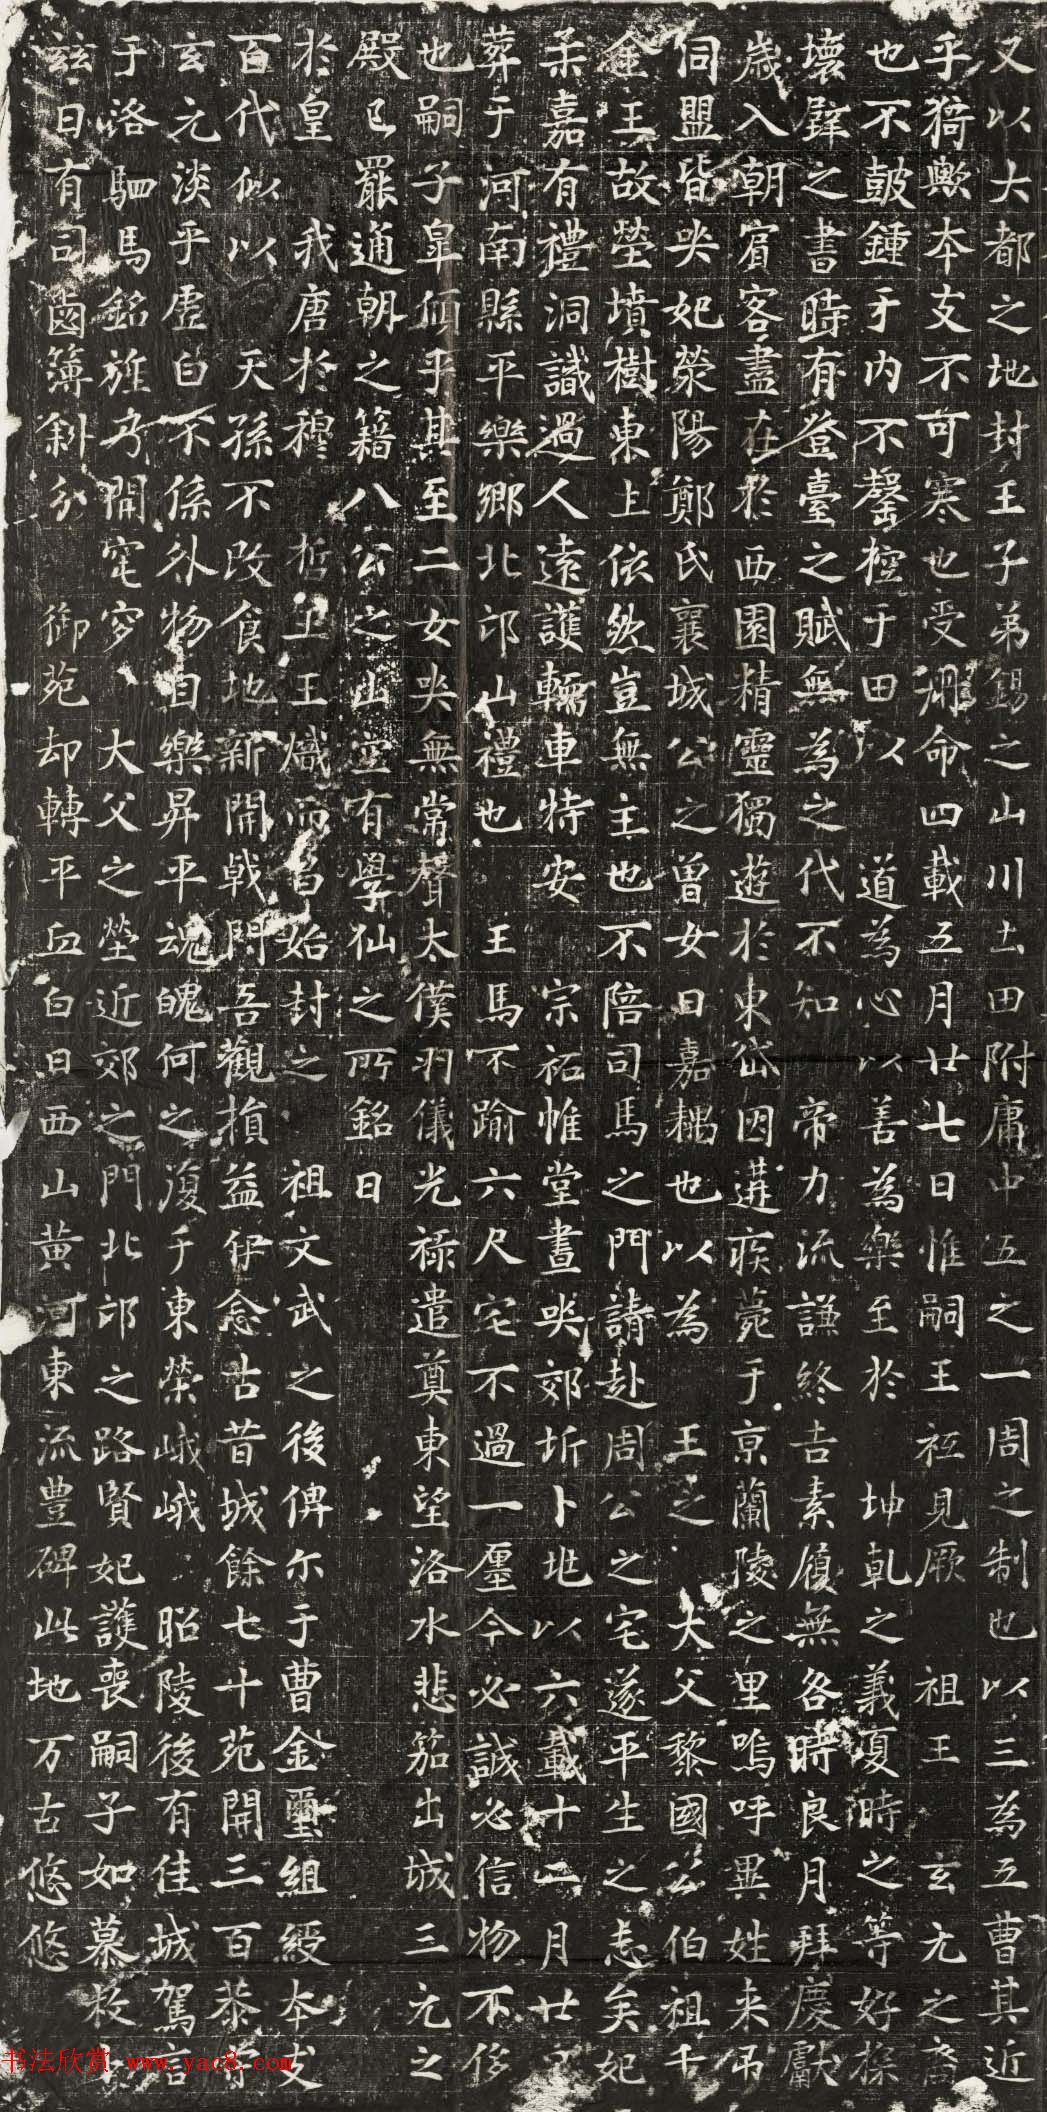 又以大都之地封王子弟錫之山川土田附庸中五之一周之制也以三為五曹其近
乎猗歟本支不可寒也受冊命四載五月廿七日惟嗣王祗見厥 祖王 玄元之裔
也不鼓鍾于內不罄控于田以 道為心以善為樂至於 坤乾之義夏時之等好
壞壁之書時有登臺之賦無為之代不知 帝力流謙終吉素履無咎時良月拜慶獻
歲入朝賓客盡在於西園精靈獨遊於東岱因遘疾薨于京蘭陵之里嗚呼異姓来吊
同盟皆哭妃滎陽鄭氏襄城公之曾女曰嘉耦也以為 王之 大父黎國公伯祖千
金王故塋墳樹東上依然豈無主也不陪司馬之門請赴周公之宅遂平生之志矣妃
柔嘉有禮洞識過人遠護輀車特安 宗祏帷堂晝哭郊圻卜地以六載十二月廿
葬于河南縣平樂鄉北邙山禮也 王馬不踰六尺宅不過一廛今必誠必信物不
也嗣子皐傾乎其至二女哭無常聲太僕羽儀光祿遣奠東望洛水悲笳出城三元之
殿已罷通朝之籍八公之山空有學仙之所銘曰
於皇 我唐於穆 哲王王熾而昌始封之 祖文武之後俾尒于曹金璽組綬本支
百代似以 天孫不改食地新開戟門吾觀損益伊念古昔城餘七十苑開三百恭
玄元淡乎虛白不係外物自樂昇平魂魄何之復于東榮峨峨 昭陵後有佳城駕言
于洛駟馬銘旌乃開窀穸 大父之塋近郊之門北邙之路賢妃護喪嗣子如慕
兹日有司鹵簿斜分 御苑却轉平丘白日西山黃河東流豊碑此地万古悠悠
书法欣赏 www.yac8.com